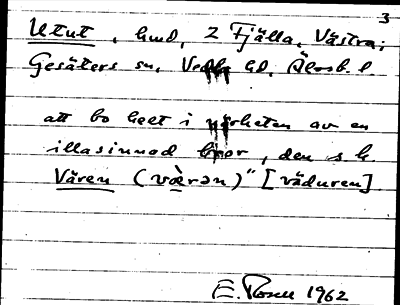 3
Utut, hund, 2 Fjälla, Västra;
Gesäters sn, Vedbo hd, Älvsb. l.
att bo helt i närheten av en
illasinnad hjor, den s k
Våren (vàerən)" [våduren]
E. Rosen 1962